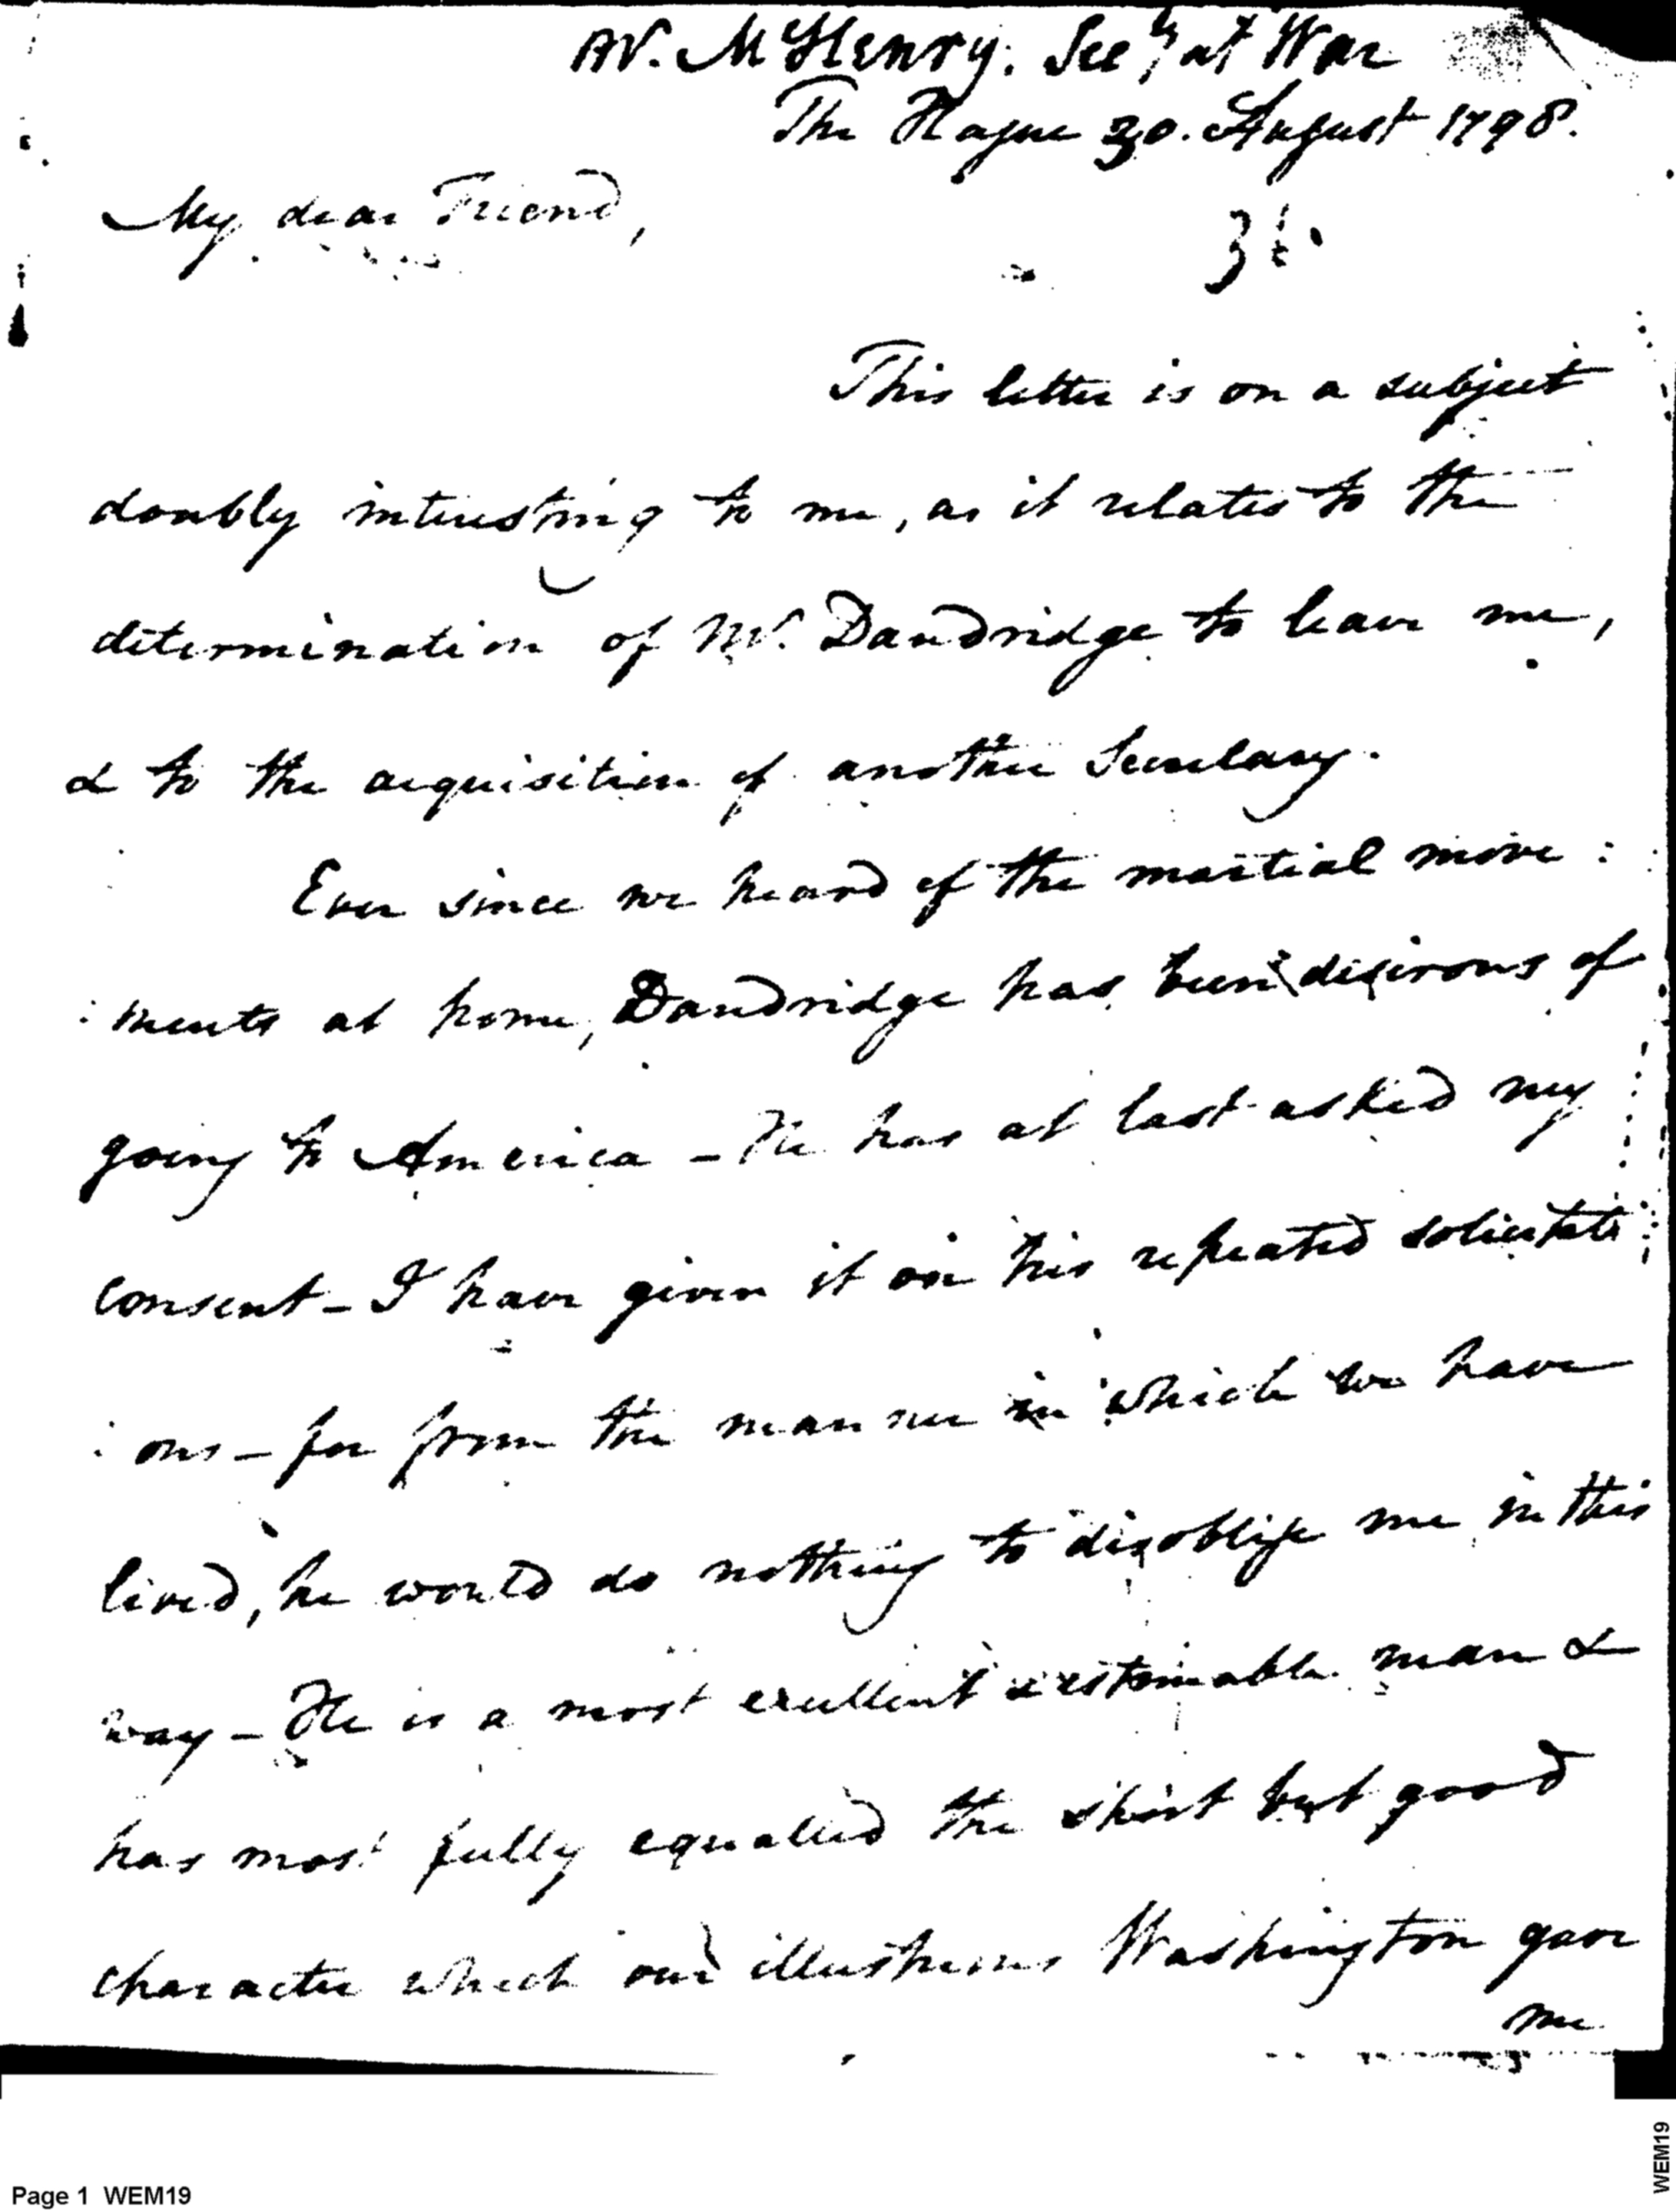 Mr. McHenry. Secy at War
The Hague 30. August 1798.
My dear Friend,
This letter is on a subject
doubly interesting to me, as it relates to the
determination of Mr. Dandridge to leave me,
& to the acquisition of another Secretary.
Ever since we heard of the martial move:
:ments at home, Dandridge has been desirous of
going to America - He has at last asked my
consent - I have given it on his repeated solicitati:
:ons - for from the manner in which we have
lived, he would do nothing to disoblige me in this
way - He is a most excellent & estimable man &
has most fully equalled the short but good
character which our illustrious Washington gave
me
Page 1 WEM19
WEM19